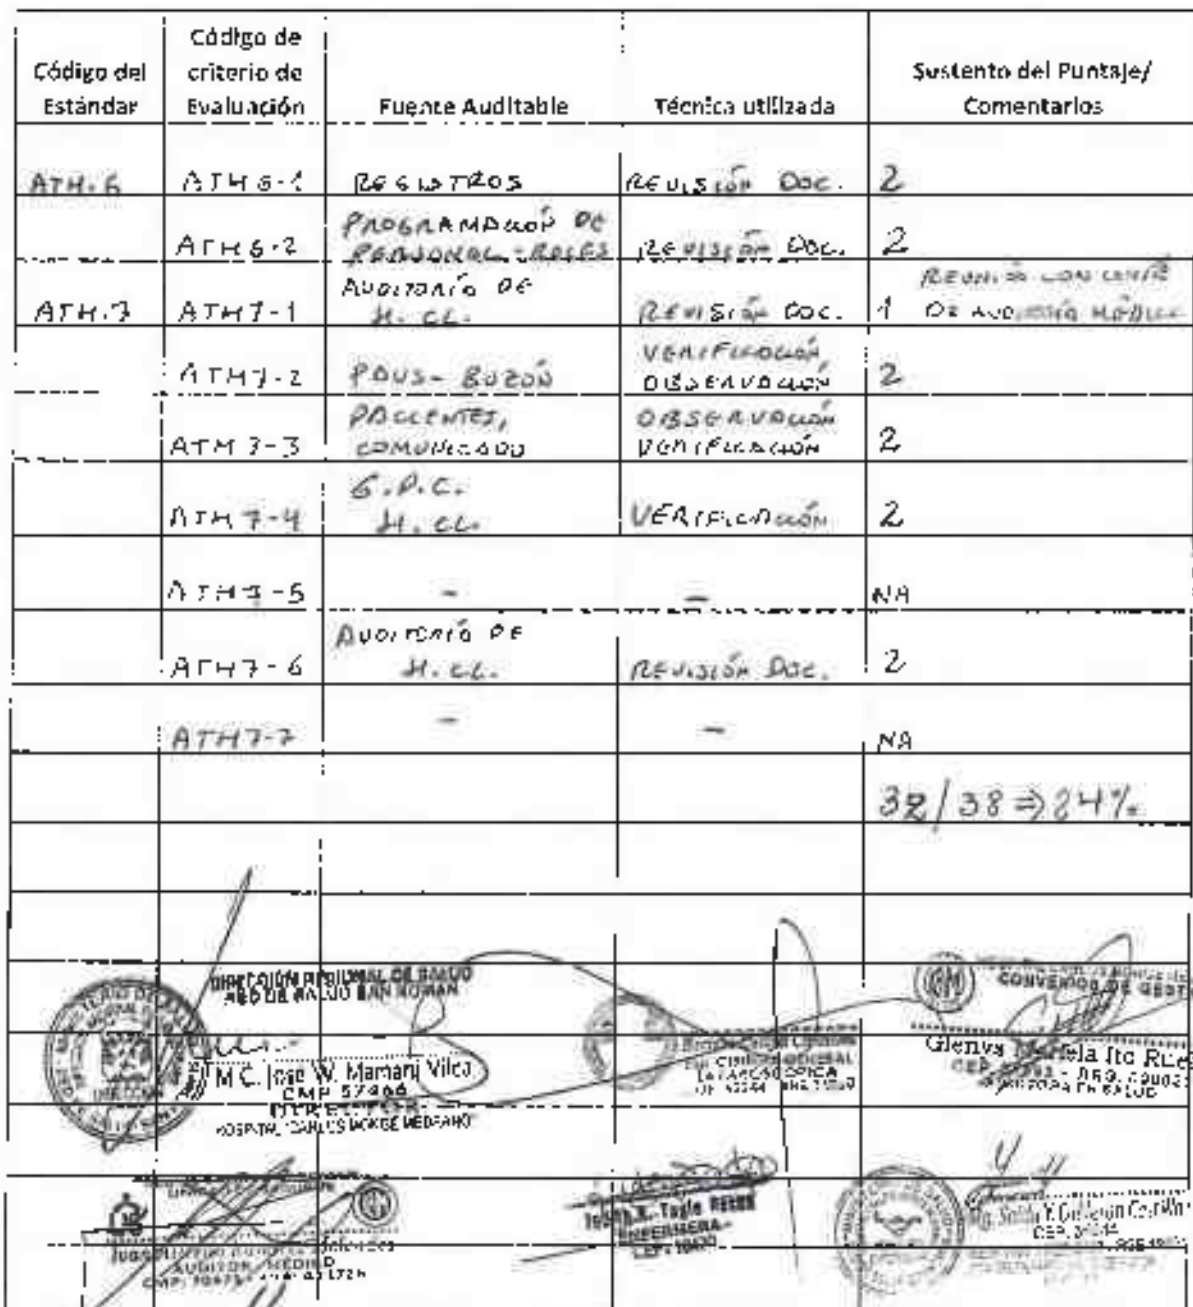 Código del Estándar
Código de criterio de Evaluación
Fuente Auditable
Técnica utilizada
Sustento del Puntaje/ Comentarios
ATH-6 ATH 6-1 REGISTROS REVISIÓN DOC. 2
ATH 6-2 PROGRAMACIÓN DE PERSONAL - ROLES REVISIÓN DOC. 2
ATH-7 ATH7-1 AUDITORÍA DE H. CL. REVISIÓN DOC. 1 REUNIÓN CON COMITÉ DE AUDITORÍA MÉDICA
ATH7-2 PAUS - BUZÓN VERIFICACIÓN, OBSERVACIÓN 2
ATH 7-3 PACIENTES, COMUNICADO OBSERVACIÓN VERIFICACIÓN 2
ATH 7-4 G.P.C. H. CL. VERIFICACIÓN 2
ATH7-5 - - NA
ATH7-6 AUDITORÍA DE H. CL. REVISIÓN DOC. 2
ATH7-7 - - NA
32/38 ⇒ 84%
DIRECCIÓN REGIONAL DE SALUD
RED DE SALUD SAN ROMAN
M.C. Jose W. Mamani Vilca
CMP 57466
DIRECTOR
HOSPITAL "CARLOS MONGE MEDRANO"
CIRUGIA GENERAL
LAPAROSCOPICA
CONVENIOS DE GESTI
Glenys Ito
AUDITORA EN SALUD
AUDITOR MÉDICO
Tagle
ENFERMERA